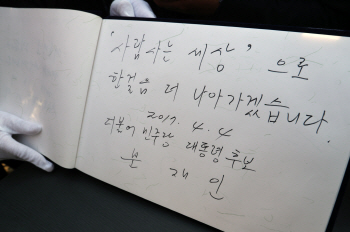 '사람사는 세상' 으로
한걸음 더 나아가겠습니다.
2017. 4. 4
더불어 민주당 대통령 후보
문 재 인